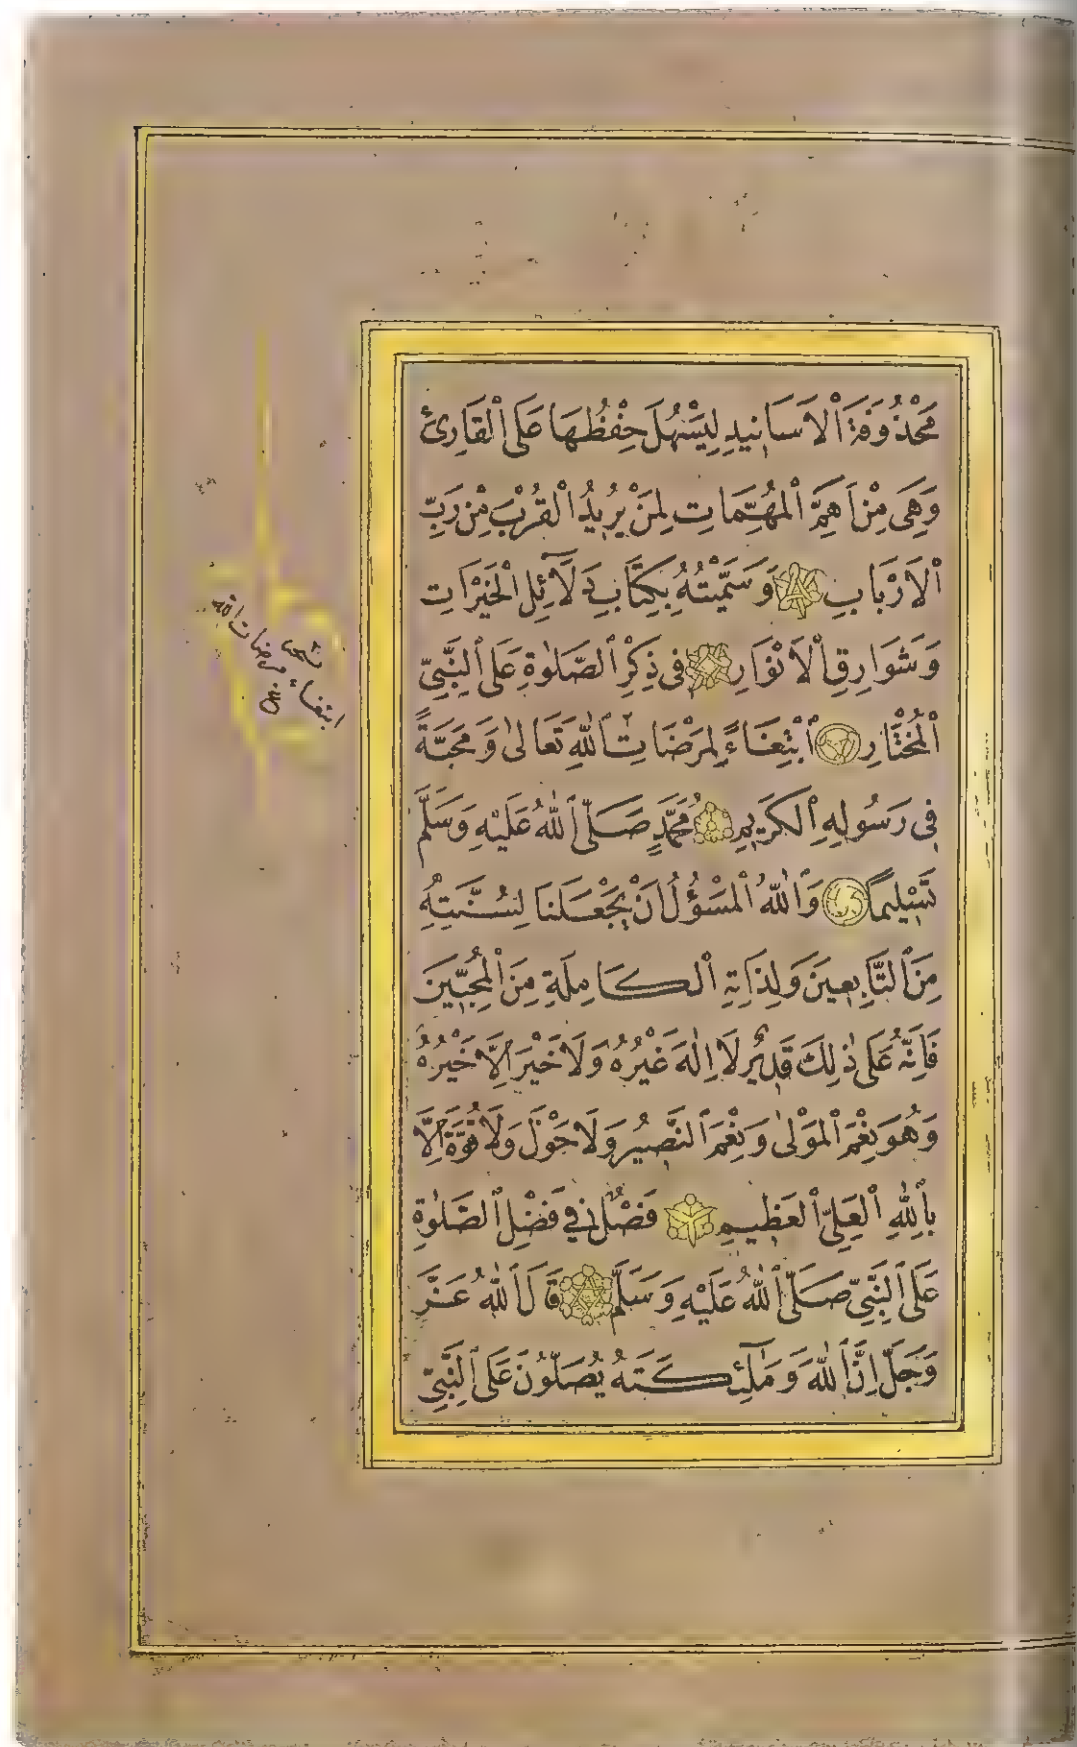 مَحْذُوفَةَ ٱلْاَسَانِيدِ لِيَسْهُلَ حِفْظُهَا عَلَى ٱلْقَارِئِ
وَهِىَ مِنْ اَهَمِّ ٱلْمُهِمَّاتِ لِمَنْ يُرِيدُ ٱلْقُرْبَ مِنْ رَبِّ
ٱلْاَرْبَابِ وَسَمَّيْتُهُ بِكِتَابِ دَلَآئِلِ ٱلْخَيْرَاتِ
وَشَوَارِقِ ٱلْاَنْوَارِ فِى ذِكْرِ ٱلصَّلٰوةِ عَلَى ٱلنَّبِىِّ
ٱلْمُخْتَارِ ٱبْتِغَاءً لِمَرْضَاتِ ٱللّٰهِ تَعَالىٰ وَمَحَبَّةً
فِى رَسُولِهِ ٱلْكَرِيمِ مُحَمَّدٍ صَلَّى ٱللّٰهُ عَلَيْهِ وَسَلَّمَ
تَسْلِيمًا وَٱللّٰهُ ٱلْمَسْؤُلُ اَنْ يَجْعَلَنَا لِسُنَّتِهِ
مِنَ ٱلتَّابِعِينَ وَلِذَاتِهِ ٱلْكَامِلَةِ مِنَ ٱلْمُحِبِّينَ
فَاِنَّهُ عَلَى ذٰلِكَ قَدِيرٌ لَا اِلٰهَ غَيْرُهُ وَلَا خَيْرَ اِلَّا خَيْرُهُ
وَهُوَ نِعْمَ ٱلْمَوْلىٰ وَنِعْمَ ٱلنَّصِيرُ وَلَا حَوْلَ وَلَا قُوَّةَ اِلَّا
بِٱللّٰهِ ٱلْعَلِىِّ ٱلْعَظِيمِ فَصْلٌ فِى فَضْلِ ٱلصَّلٰوةِ
عَلَى ٱلنَّبِىِّ صَلَّى ٱللّٰهُ عَلَيْهِ وَسَلَّمَ قَالَ ٱللّٰهُ عَزَّ
وَجَلَّ اِنَّ ٱللّٰهَ وَمَلٰٓئِكَتَهُ يُصَلُّونَ عَلَى ٱلنَّبِىِّ
ابتغاء مرضات الله